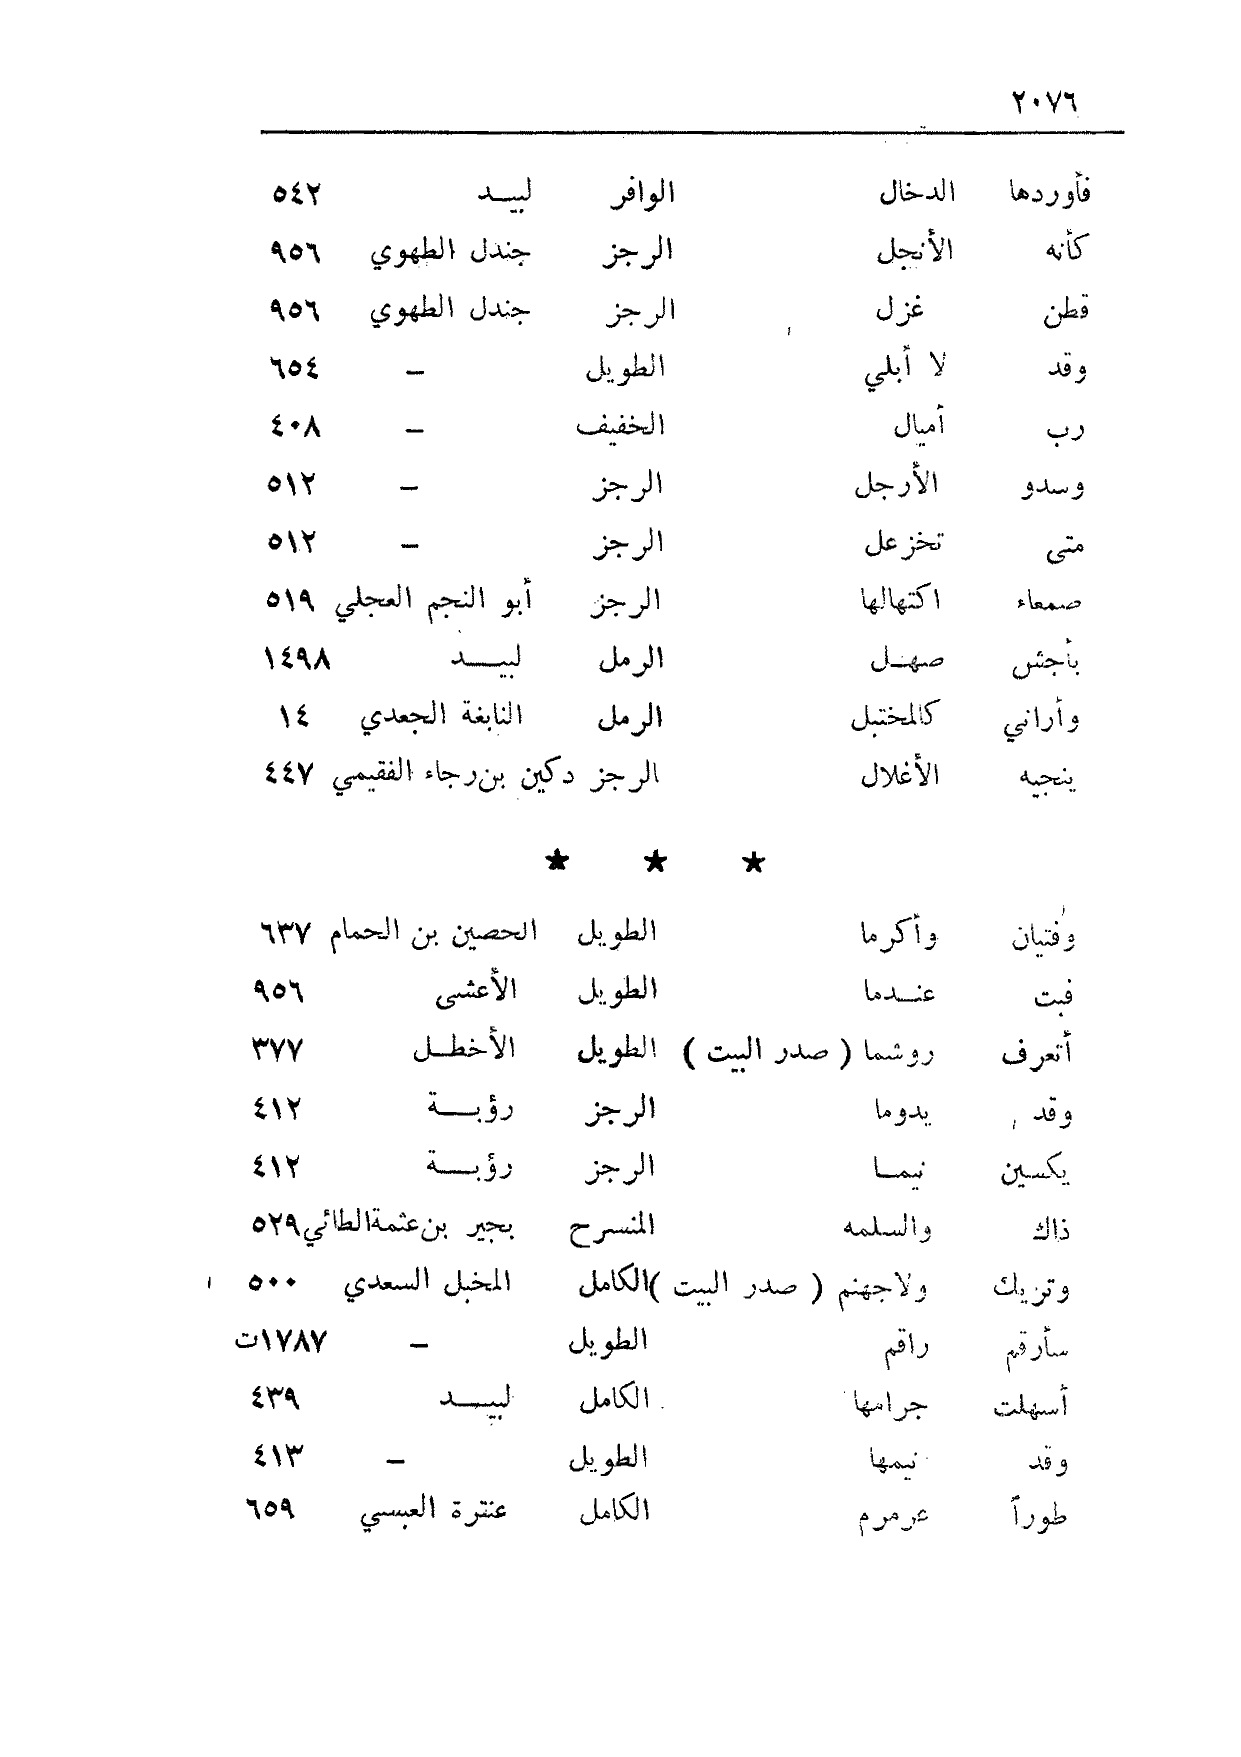 ٢٠٧٦
فأوردها الدخال الوافر لبيـد ٥٤٢
كأنه الأنجل الرجز جندل الطهوي ٩٥٦
قطن غزل الرجز جندل الطهوي ٩٥٦
وقد لا أبلي الطويل – ٦٥٤
رب أميال الخفيف – ٤٠٨
وسدو الأرجل الرجز – ٥١٢
متى تخزعل الرجز – ٥١٢
صمعاء اكتهالها الرجز أبو النجم العجلي ٥١٩
بأجش صهـل الرمل لبيـد ١٤٩٨
وأراني كالمختبل الرمل النابغة الجعدي ١٤
ينجيه الأغلال الرجز دكين بن رجاء الفقيمي ٤٤٧
★ ★ ★
وفتيان وأكرما الطويل الحصين بن الحمام ٦٣٧
فبت عنـدما الطويل الأعشى ٩٥٦
أتعرف روشما ( صدر البيت ) الطويل الأخطـل ٣٧٧
وقد يدوما الرجز رؤبـة ٤١٢
يكسين نيمـا الرجز رؤبـة ٤١٢
ذاك والسلمه المنسرح بجير بن عثمة الطائي ٥٢٩
وتريك ولاجهنم ( صدر البيت ) الكامل المخبل السعدي ٥٠٠
سأرقم راقم الطويل – ١٧٨٧ت
أسهلت جرامها الكامل لبيـد ٤٣٩
وقد نيمها الطويل – ٤١٣
طوراً عرمرم الكامل عنترة العبسي ٦٥٩